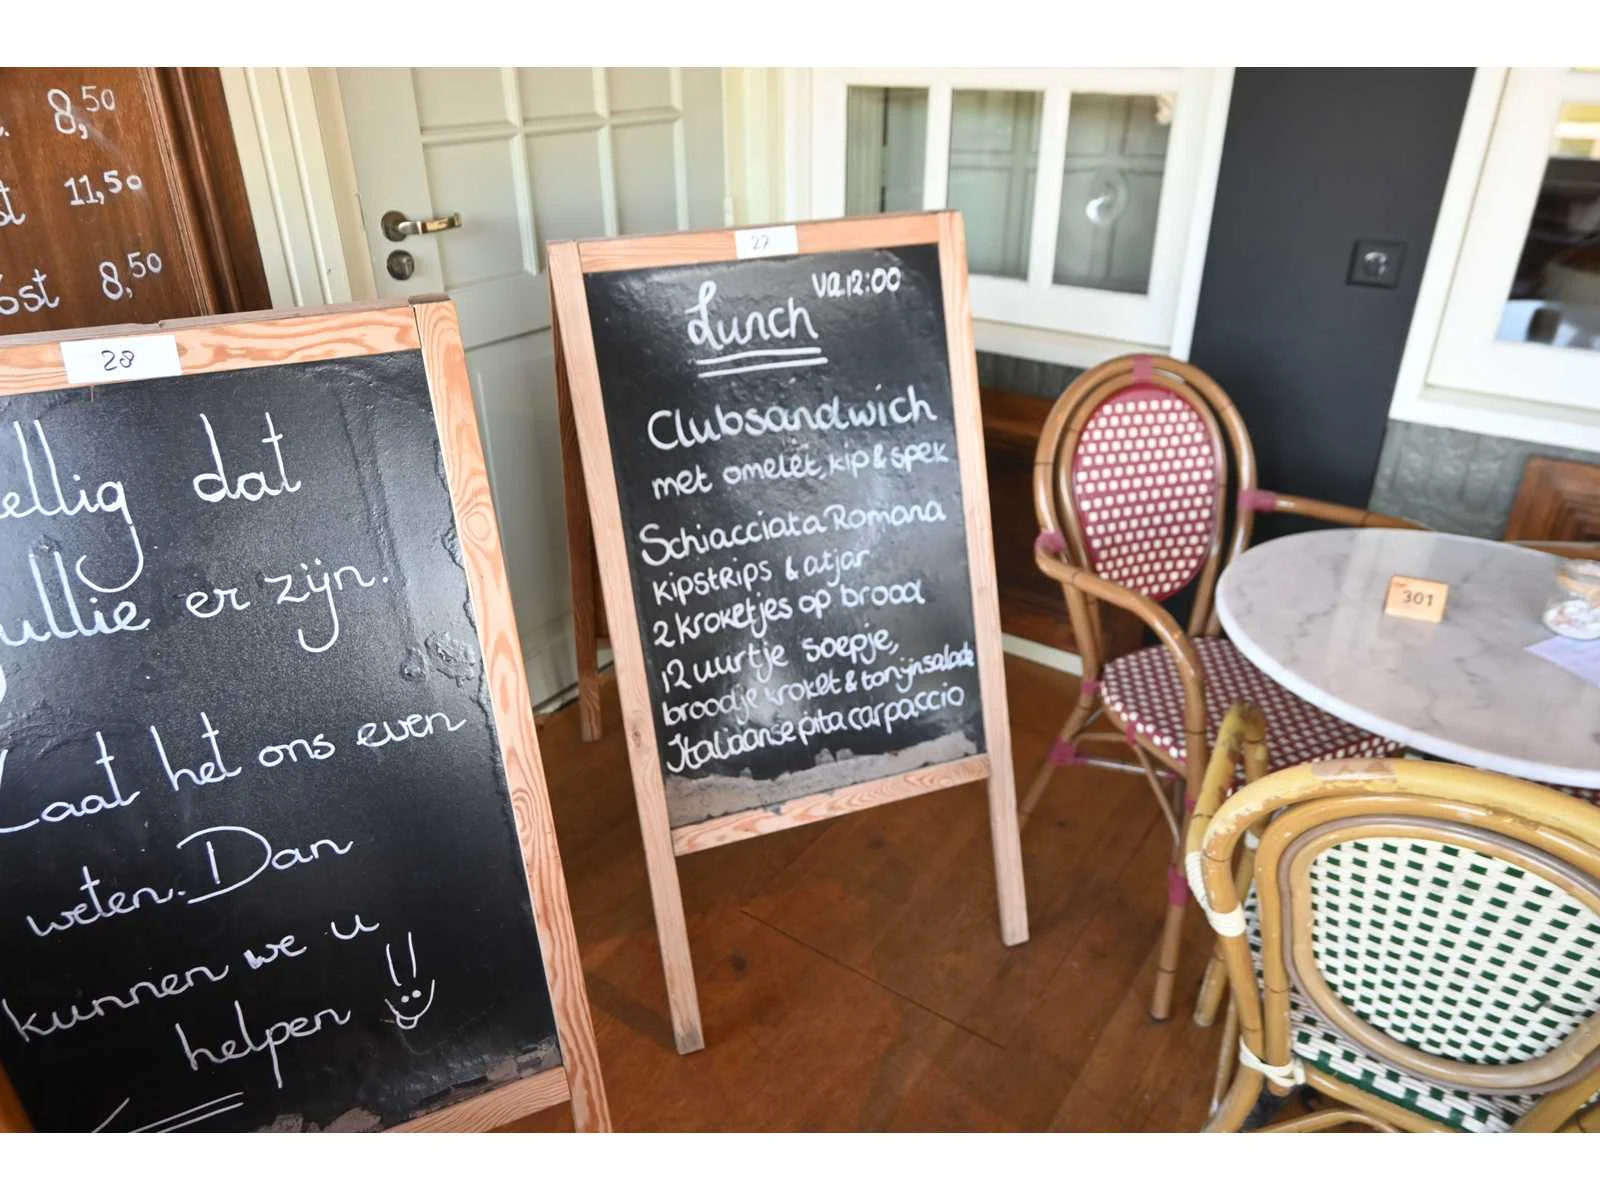 8,50
11,50
8,50
28
dat
er zijn.
Laat het ons even
weten. Dan
kunnen we u
helpen
27
Lunch va.12:00
Clubsandwich
met omelet, kip & spek
Schiacciata Romana
kipstrips & atjar
2 kroketjes op brood
12 uurtje soepje,
broodje kroket & tonijnsalade
Italiaanse pita carpaccio
301